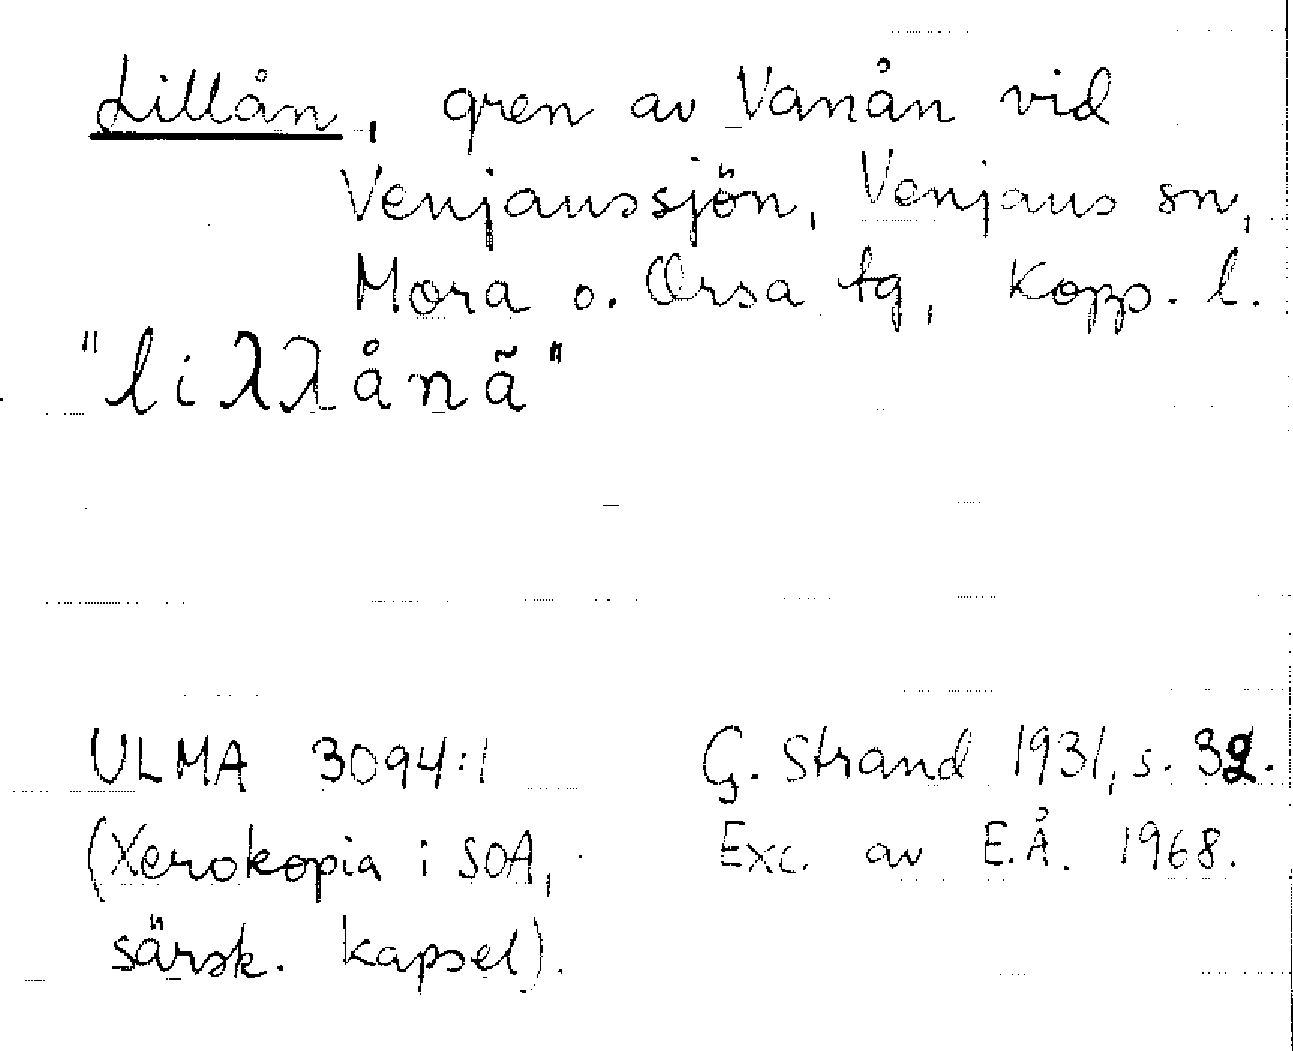 Lillån, gren av Vanån vid
Venjanssjön, Venjans sn,
Mora o. Orsa tg, Kopp. l.
"liλλånã"
ULMA 3094:1
(Xerokopia i SOA,
särsk. kapsel).
G. Strand 1931, s. 32.
Exc. av E.Å. 1968.